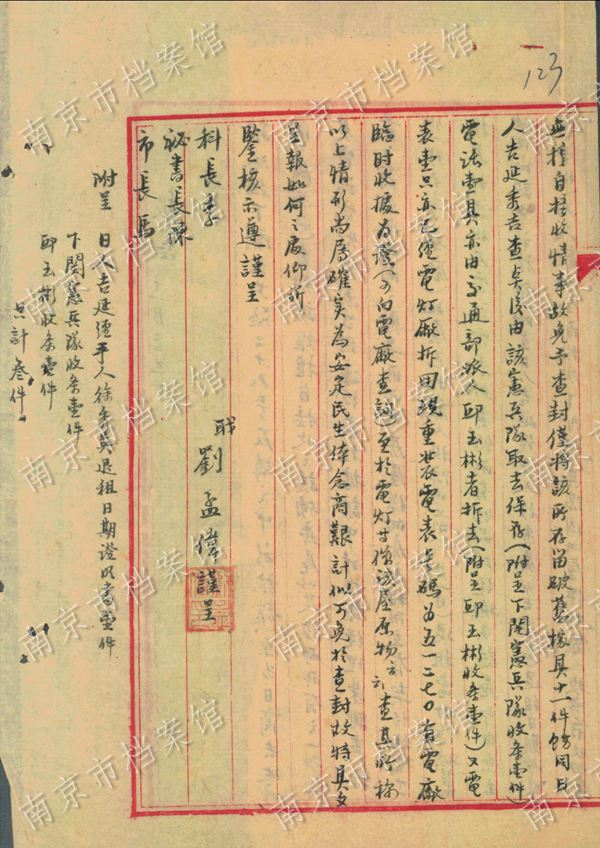 123
無擅自接收情事故免予查封僅將該所存留破舊傢具十一件飭同日
人吉延秀吉查点後由該憲兵隊取去保存(附呈下関憲兵隊收条壹件)
電話壹具亦由交通部派人邱玉彬者拆去(附呈邱玉彬收条壹件)又電
表壹只亦已經電灯廠拆回現重裝電表号碼为五一二七〇有電廠
臨时收據为證(可向電廠查詢)至於電灯等係該屋原物云云查其所称
以上情形尚属確实为安定民生体念商艱計似可免於查封故特具文
呈報如何之處仰祈
鑒核示遵謹呈
科長李
秘書長陳
市長馬
職劉孟偉謹呈
附呈 日人吉延經手人徐英退租日期證明書壹件
下関憲兵隊收条壹件
邱玉彬收条壹件
共計叁件
南京市档案馆